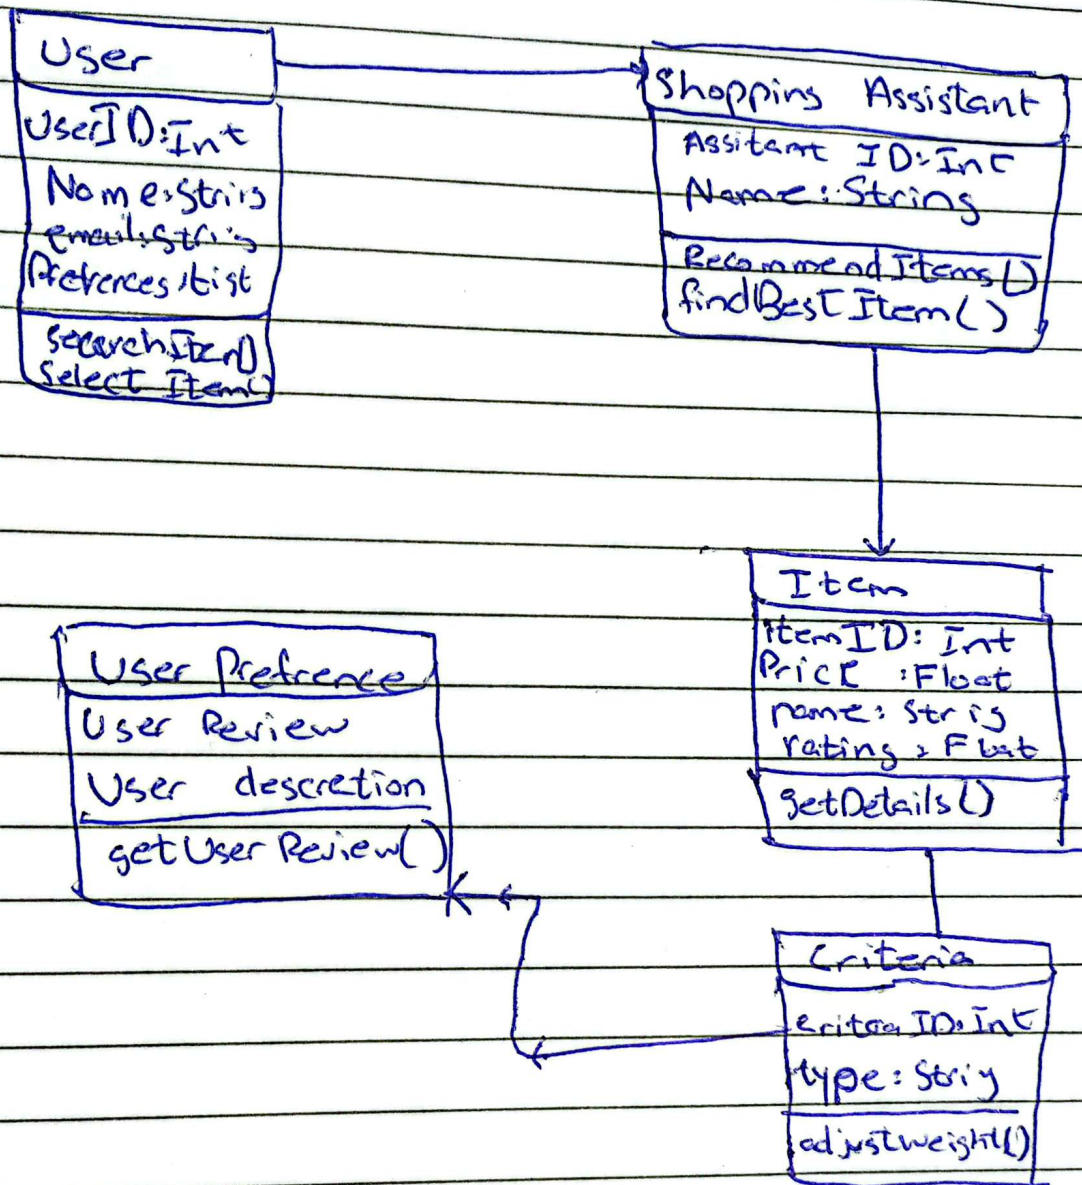 User
UserID:Int
Name:String
email:String
Prefrences:List
searchItem()
Select Item()
Shopping Assistant
Assitant ID:Int
Name:String
RecommendItems()
findBestItem()
Item
itemID: Int
Price :Float
name: String
rating: Float
getDetails()
User Prefrence
User Review
User descretion
getUserReview()
Criteria
ID:Int
type: String
adjustweight()